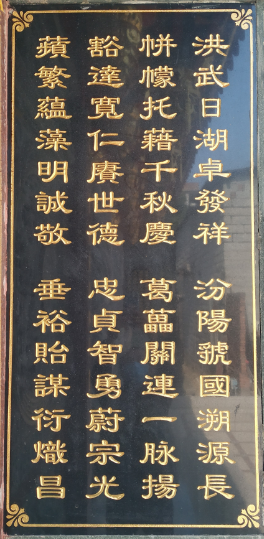 洪武日湖卓發祥　汾陽號國溯源長
帡幪托藉千秋慶　葛藟關連一脉揚
豁達寬仁賡世德　忠貞智勇蔚宗光
蘋繁蘊藻明誠敬　垂裕貽謀衍熾昌